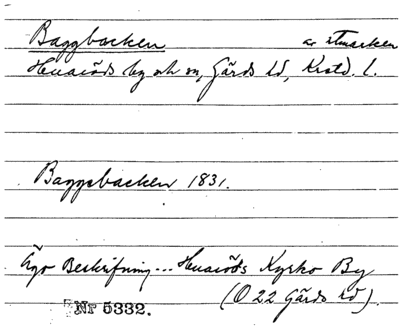 Baggbacken av utmarken
Huaröds by och sn, Gärds hd, Krstd. l.
Baggebacken 1831.
Ägo Beskrifning... Huaröds Kyrko By
(O 22 Gärds hd).
Nr 5332.